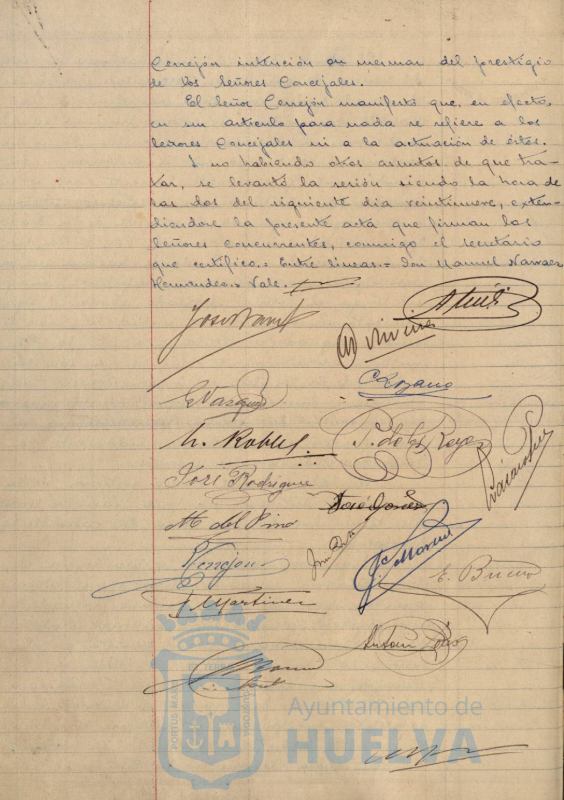 Cerrejón intención en mermar del prestigio
de los Señores Concejales.
El Señor Cerrejón manifestó que, en efecto,
en su artículo para nada se refiere a los
Señores Concejales ni a la actuación de éstos.
I no habiendo otros asuntos de que tra-
tar, se levantó la sesión siendo la hora de
las dos del siguiente dia veintinueve, exten-
diendose la presente acta que firman los
Señores concurrentes, conmigo el secretario
que certifico.= Entre lineas.= Don Manuel Narvaez
Hernandez.= Vale.
C. Lozano
E Vazquez
M. Robles
P. de la Rosa
José Rodriguez
José Gomez
M. del Pino
Cerrejon
J. Moreno
E. Bueno
J Martinez
Antonio
PORTUS MARIS
ET TERRÆ
CUSTODIA
Ayuntamiento de
HUELVA